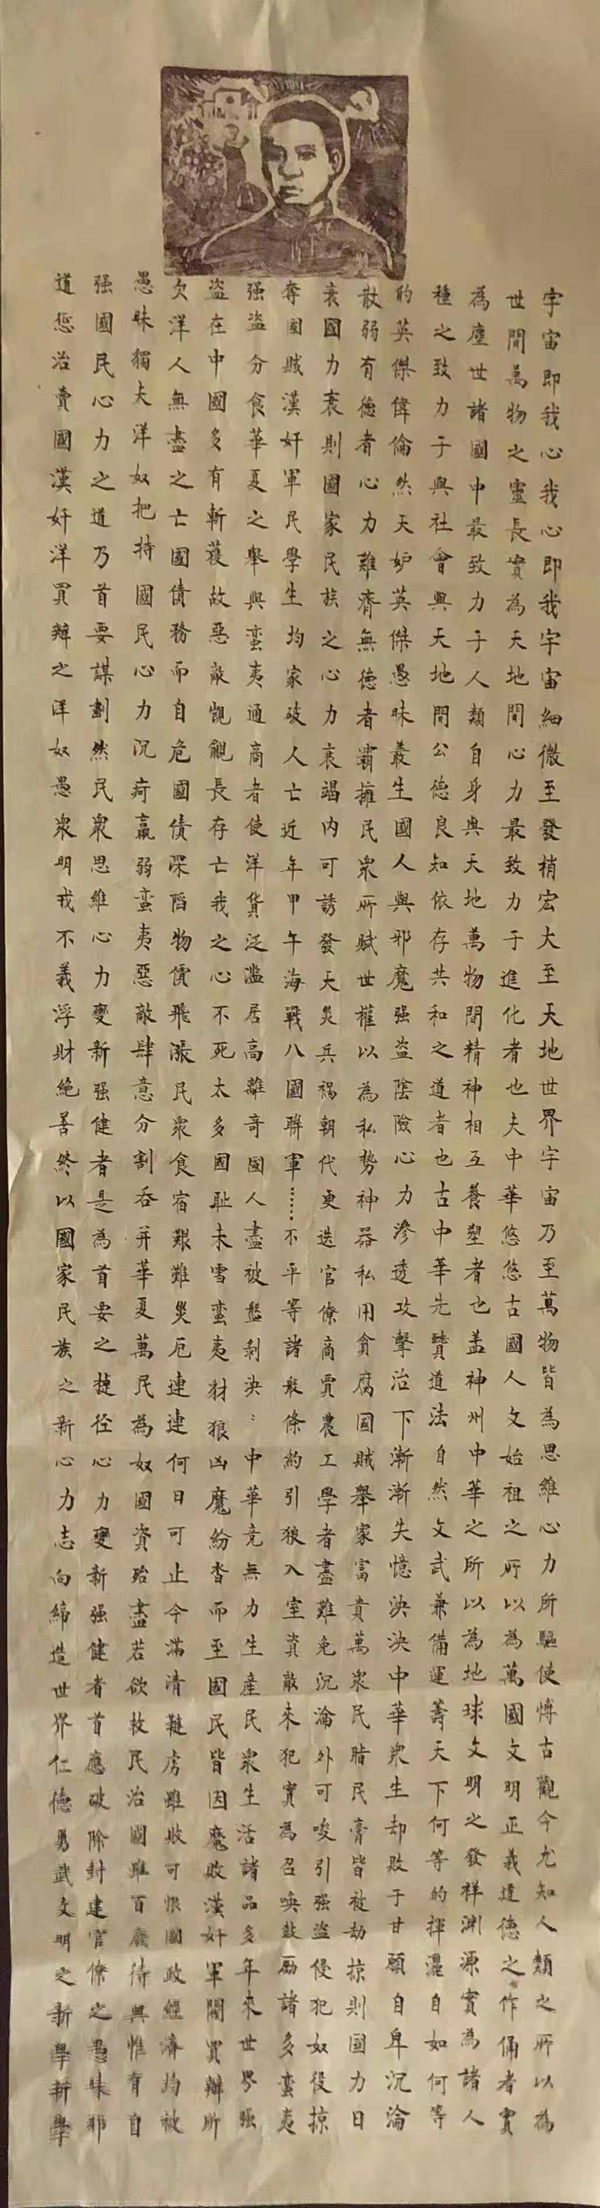 宇宙即我心我心即我宇宙細微至發梢宏大至天地世界宇宙乃至萬物皆為思維心力所驅使博古觀今尤知人類之所以為
世間萬物之靈長實為天地間心力最致力于進化者也夫中華悠悠古國人文始祖之所以為萬國文明正義道德之作俑者實
為塵世諸國中最致力于人類自身與天地萬物間精神相互養塑者也盖神州中華之所以為地球文明之發祥淵源實為諸人
種之致力于與社會與天地間公德良知依存共和之道者也古中華先贊道法自然文武兼備運籌天下何等的揮灑自如何等
的英傑偉倫然天妒英傑愚昧叢生國人與邪魔强盜陰險心力渗透攻擊治下漸漸失憶泱泱中華眾生却敗于甘願自卑沉淪
散弱有德者心力難濟無德者霸擁民眾所賦世權以為私勢神器私用貪腐國賊舉家富貴萬眾民脂民膏皆被劫掠則國力日
衰國力衰則國家民族之心力衰竭内可誘發天災兵禍朝代更迭官僚商賈農工學者盡難免沉淪外可唆引强盜侵犯奴役掠
奪國賊漢奸軍民學生均家破人亡近年甲午海戰八國聯軍……不平等諸般條約引狼入室資敵來犯實為召喚鼓励諸多蛮夷
强盜分食華夏之舉與蛮夷通商者使洋貨泛濫居高離奇國人盡被盤剥決：中華竞無力生産民衆生活諸品多年來世界强
盜在中國多有斬獲故惡敵覬覦長存亡我之心不死太多國耻未雪蛮夷豺狼凶魔紛沓而至國民皆因魔敗漢奸軍閥買辦所
欠洋人無盡之亡國債務而自危國債深陷物價飛漲民衆食宿艱難災厄連連何日可止今滿清韃虏雖敗可恨國政經濟均被
愚昧獨夫洋奴把持國民心力沉疴羸弱蛮夷惡敵肆意分割吞并華夏萬民為奴國資殆盡若欲救民治國雖百廢待興惟有自
强國民心力之道乃首要謀劃然民衆思維心力變新强健者是為首要之捷径心力變新强健者首應破除封建官僚之愚昧邪
道惩治賣國漢奸洋買辦之洋奴愚衆明戎不義浮財絶善終以國家民族之新心力志向締造世界仁德勇武文明之新學新學